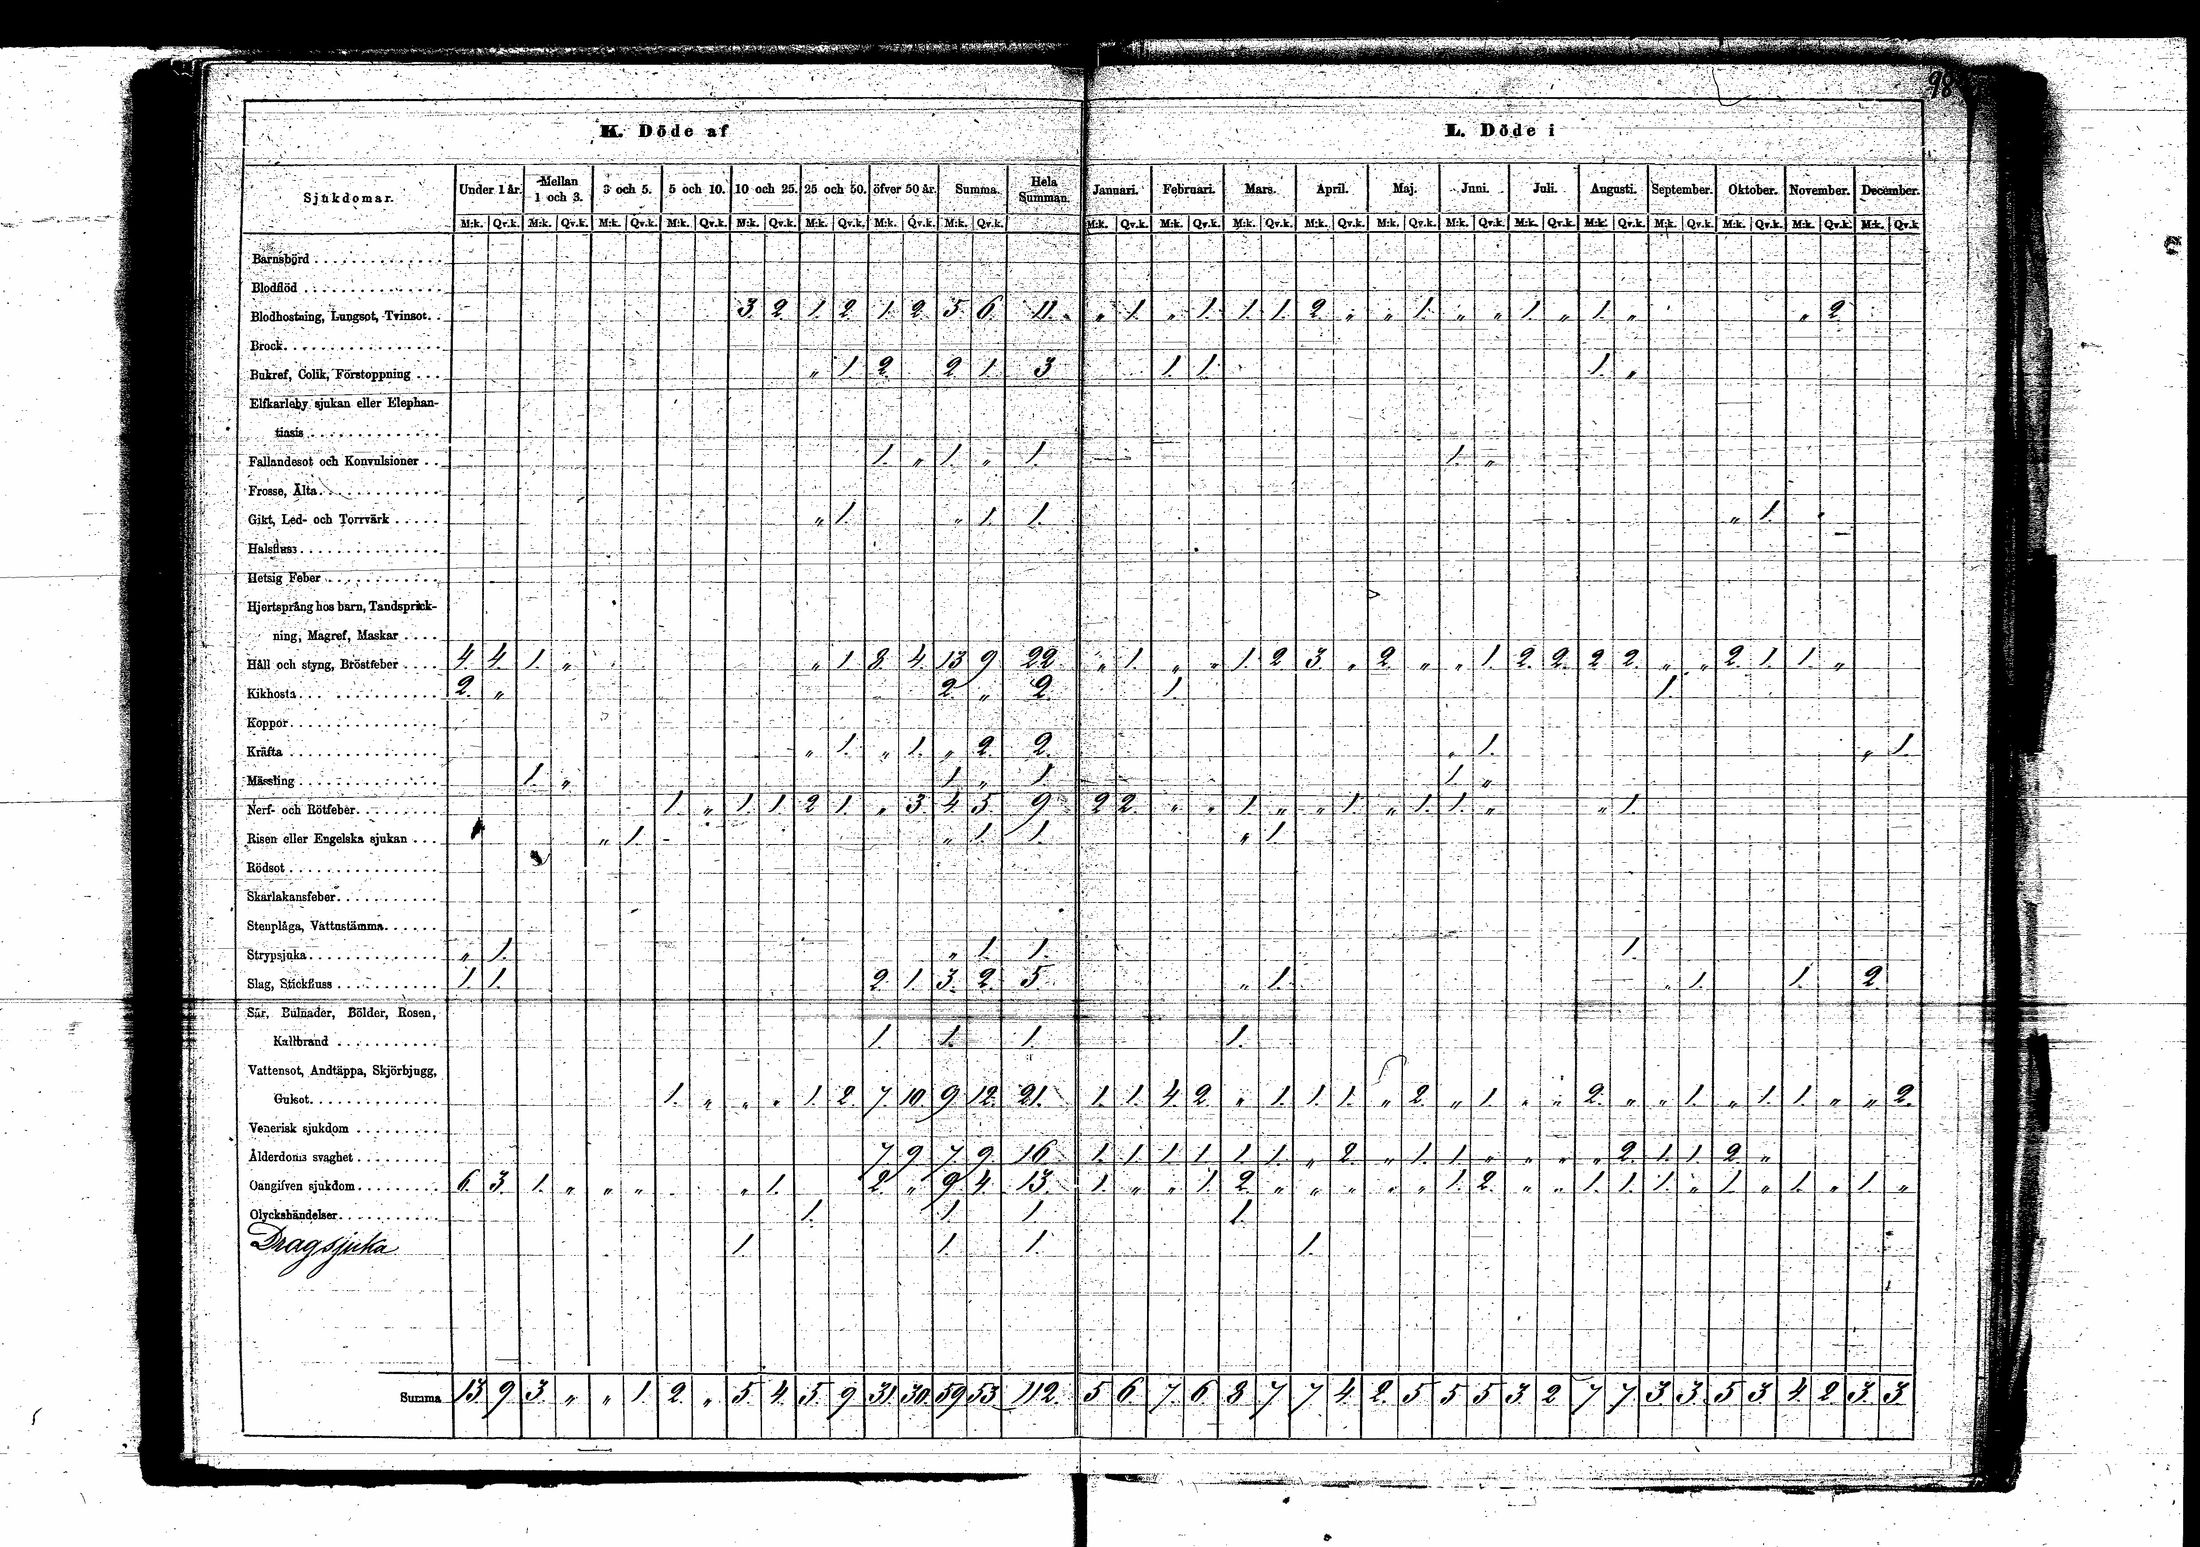 98
K. Döde af L. Döde i
Sjukdomar. Under 1 år. Mellan 1 och 3. 3 och 5. 5 och 10. 10 och 25. 25 och 50. öfver 50 år. Summa. Hela Summan. Januari. Februari. Mars. April. Maj. Juni. Juli. Augusti. September. Oktober. November. December.
M:k. Qv.k. M:k. Qv.k. M:k. Qv.k. M:k. Qv.k. M:k. Qv.k. M:k. Qv.k. M:k. Qv.k. M:k. Qv.k. M:k. Qv.k. M:k. Qv.k. M:k. Qv.k. M:k. Qv.k. M:k. Qv.k. M:k. Qv.k. M:k. Qv.k. M:k. Qv.k. M:k. Qv.k. M:k. Qv.k. M:k. Qv.k. M:k. Qv.k.
Barnsbörd
Blodflöd
Blodhostning, Lungsot, Tvinsot. 3. 2. 1. 2. 1. 2. 5. 6. 11. „ 1. „ 1. 1. 1. 2. „ „ 1. „ „ 1. „ 1. „ „ 2.
Brock
Bukref, Colik, Förstoppning „ 1. 2. 2. 1. 3 1. 1. 1. „
Elfkarleby sjukan eller Elephan-
tiasis
Fallandesot och Konvulsioner 1. „ 1. „ 1. 1. „
Frosse, Älta
Gikt, Led- och Torrvärk „ 1. „ 1. 1. „ 1.
Halsfluss
Hetsig Feber
Hjertsprång hos barn, Tandsprick-
ning, Magref, Maskar
Håll och styng, Bröstfeber 4. 4. 1. „ „ 1. 8. 4. 13 9. 22 „ 1. „ „ 1. 2 3. „ 2. „ „ 1. 2. 2. 2. 2. „ „ 2. 1. 1. „
Kikhosta 2. „ 2. „ 2. 1. 1.
Koppor
Kräfta „ 1. „ 1. „ 2. 2. „ 1. „ 1.
Mässling 1. „ 1. „ 1. 1. „
Nerf- och Rötfeber 1. „ 1. 1. 2. 1. „ 3. 4. 5. 9. 2 2. „ „ 1. „ „ 1. „ 1. 1. „ „ 1.
Risen eller Engelska sjukan „ 1. „ 1. 1. „ 1.
Rödsot
Skarlakansfeber
Stenplåga, Vattustämma
Strypsjuka „ 1. „ 1. 1. 1.
Slag, Stickfluss 1. 1. 2. 1. 3. 2. 5. „ 1. „ 1. 1. 2.
Sår, Bulnader, Bölder, Rosen,
Kallbrand 1. 1. 1. 1.
Vattensot, Andtäppa, Skjörbjugg,
Gulsot 1. „ „ „ 1. 2. 7. 10. 9. 12. 21. 1. 1. 4. 2. „ 1. 1. 1. „ 2. „ 1. „ „ 2. „ „ 1. „ 1. 1. „ „ 2.
Venerisk sjukdom
Ålderdoms svaghet 7 9. 7. 9. 16 1. 1. 1. 1. 1. 1. „ 2. „ 1. 1. „ „ „ „ 2. 1. 1. 2. „
Oangifven sjukdom 6. 3. 1. „ „ „ „ 1. 2. „ 9. 4. 13. 1. „ „ 1. 2. „ „ „ „ „ 1. 2. „ „ 1. 1. 1. „ 1. „ 1. „ 1. „
Olyckshändelser 1. 1. 1. 1.
Dragsjuka 1. 1. 1. 1.
Summa 13. 9. 3. „ „ 1. 2. „ 5. 4. 5. 9. 31. 30. 59. 53. 112. 5 6. 7. 6. 8. 7. 7 4. 2. 5. 5 5. 3. 2 7 7. 3. 3. 5. 3. 4. 2. 3. 3.